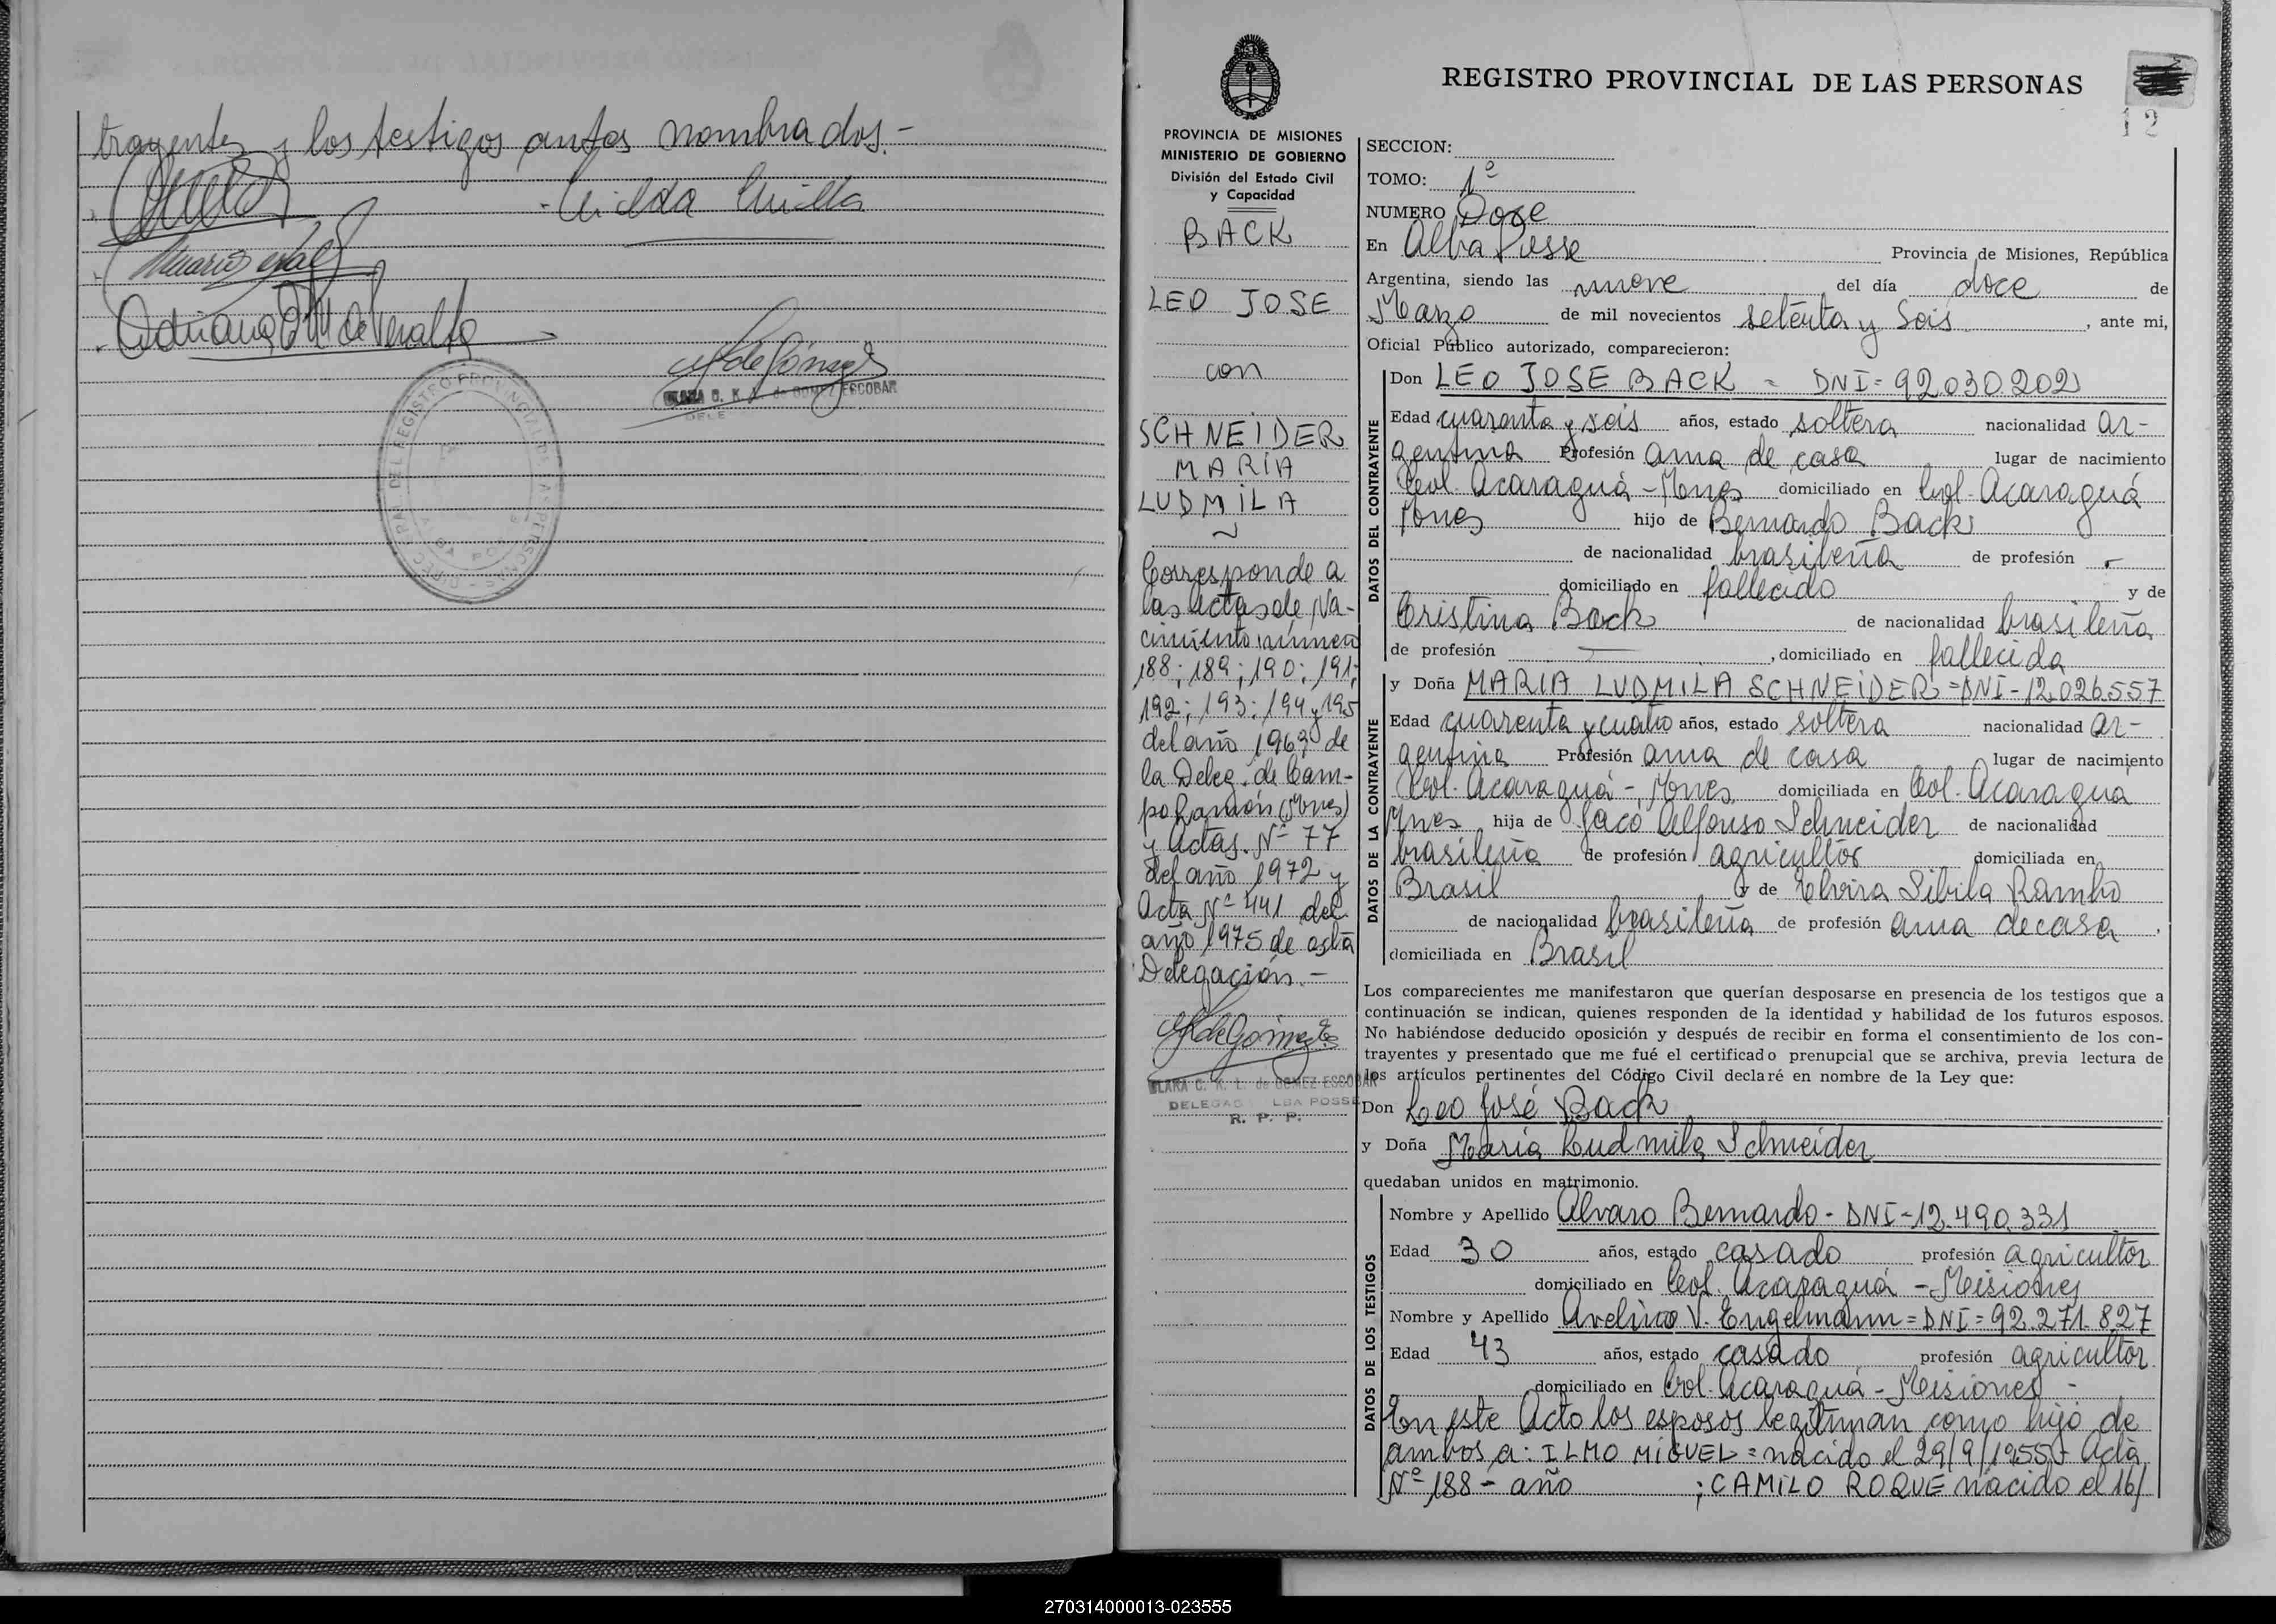 trayentes y los testigos antes nombrados.-
REGISTRO PROVINCIAL DE LAS PERSONAS
12
PROVINCIA DE MISIONES
MINISTERIO DE GOBIERNO
División del Estado Civil
y Capacidad
BACK
LEO JOSE
con
SCHNEIDER
MARIA
LUDMILA
Corresponde a
las Actas de Na-
cimiento número
188; 189; 190; 191;
192; 193; 194 y 195
del año 1963 de
la Deleg. de Cam-
po Ramón (Mnes)
y Actas. Nº 77
del año 1972 y
Acta Nº 441 del
año 1975 de esta
Delegación.-
CLARA C. K. L. de GOMEZ ESCOBAR
R. P. P.
SECCION:
TOMO: 1º
NUMERO Doce
En Alba Posse Provincia de Misiones, República
Argentina, siendo las nueve del día doce de
Marzo de mil novecientos setenta y seis, ante mi,
Oficial Público autorizado, comparecieron:
DATOS DEL CONTRAYENTE
Don LEO JOSE BACK = DNI = 92.030.202
Edad cuarenta y seis años, estado soltera nacionalidad ar-
gentina Profesión ama de casa lugar de nacimiento
Col. Acaraguá - Mnes domiciliado en Col. Acaraguá
Mnes hijo de Bernardo Back
de nacionalidad brasileña de profesión -
domiciliado en fallecido y de
Cristina Back de nacionalidad brasileña
de profesión —, domiciliado en fallecida
DATOS DE LA CONTRAYENTE
y Doña MARIA LUDMILA SCHNEIDER = DNI - 12.026.557
Edad cuarenta y cuatro años, estado soltera nacionalidad ar-
gentina Profesión ama de casa lugar de nacimiento
Col. Acaraguá - Mnes domiciliada en Col. Acaraguá
Mnes hija de Jacó Alfonso Schneider de nacionalidad
brasileña de profesión agricultor domiciliada en
Brasil y de Elveira Sibila Rambo
de nacionalidad brasileña de profesión ama de casa,
domiciliada en Brasil
Los comparecientes me manifestaron que querían desposarse en presencia de los testigos que a
continuación se indican, quienes responden de la identidad y habilidad de los futuros esposos.
No habiéndose deducido oposición y después de recibir en forma el consentimiento de los con-
trayentes y presentado que me fué el certificado prenupcial que se archiva, previa lectura de
los artículos pertinentes del Código Civil declaré en nombre de la Ley que:
Don Leo José Back
y Doña María Ludmila Schneider
quedaban unidos en matrimonio.
DATOS DE LOS TESTIGOS
Nombre y Apellido Alvaro Bernardo - DNI - 12.490.331
Edad 30 años, estado casado profesión agricultor
domiciliado en Col. Acaraguá - Misiones
Nombre y Apellido Avelino V. Engelmann = DNI = 92.271.827
Edad 43 años, estado casado profesión agricultor
domiciliado en Col. Acaraguá - Misiones -
En este Acto los esposos legitiman como hijo de
ambos a: ILMO MIGUEL = nacido el 29/9/1955 - Acta
Nº 188 - año ; CAMILO ROQUE nacido el 16/
270314000013-023555